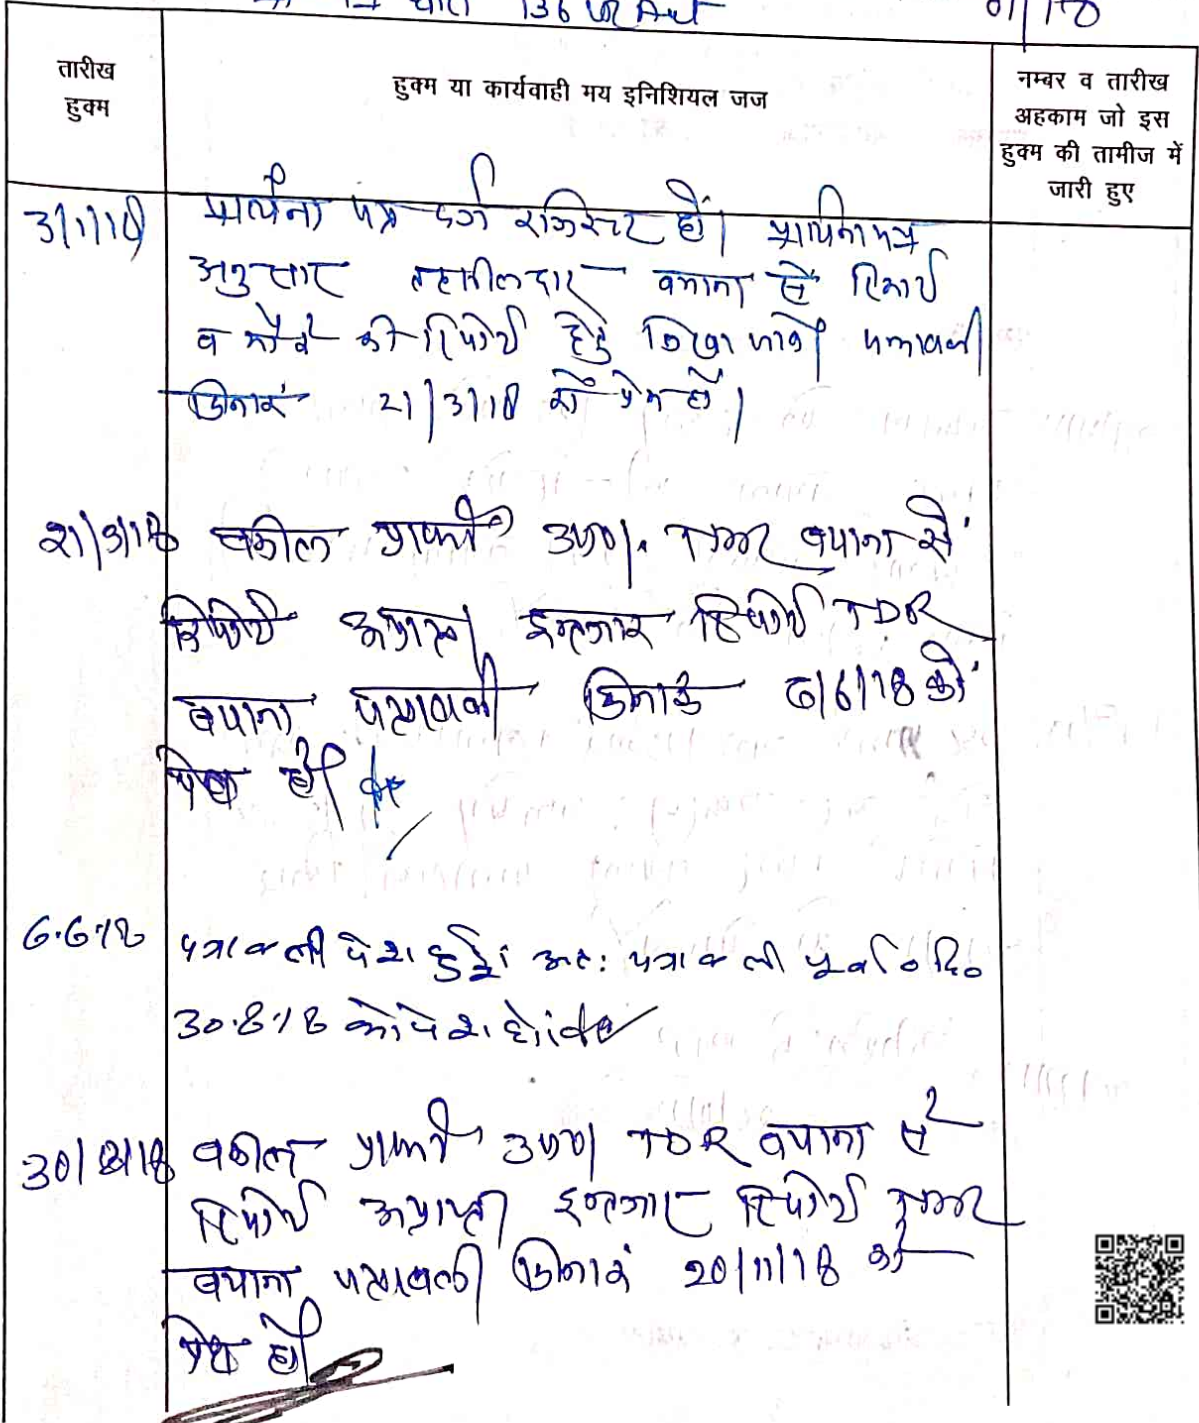 धारा 136 LR Act 01/18
तारीख
हुक्म
हुक्म या कार्यवाही मय इनिशियल जज
नम्बर व तारीख
अहकाम जो इस
हुक्म की तामीज में
जारी हुए
31/1/18 प्रार्थना पत्र दर्ज रजिस्टर हो। प्रार्थना पत्र
अनुसार तहसीलदार बयाना से रिकार्ड
व मौके की रिपोर्ट हेतु लिखा जावे। पत्रावली
दिनांक 21/3/18 को पेश हो।
21/3/18 वकील प्रार्थी उप०। TDR बयाना से
रिपोर्ट अप्राप्त। इन्तजार रिपोर्ट TDR
बयाना पत्रावली दिनांक 6/6/18 को
पेश हो।
6.6.18 पत्रावली पेश हुई। अतः पत्रावली पूर्व० दि०
30.8.18 को पेश हो।
30/8/18 वकील प्रार्थी उप०। TDR बयाना से
रिपोर्ट अप्राप्त। इन्तजार रिपोर्ट TDR
बयाना पत्रावली दिनांक 20/11/18 को
पेश हो।